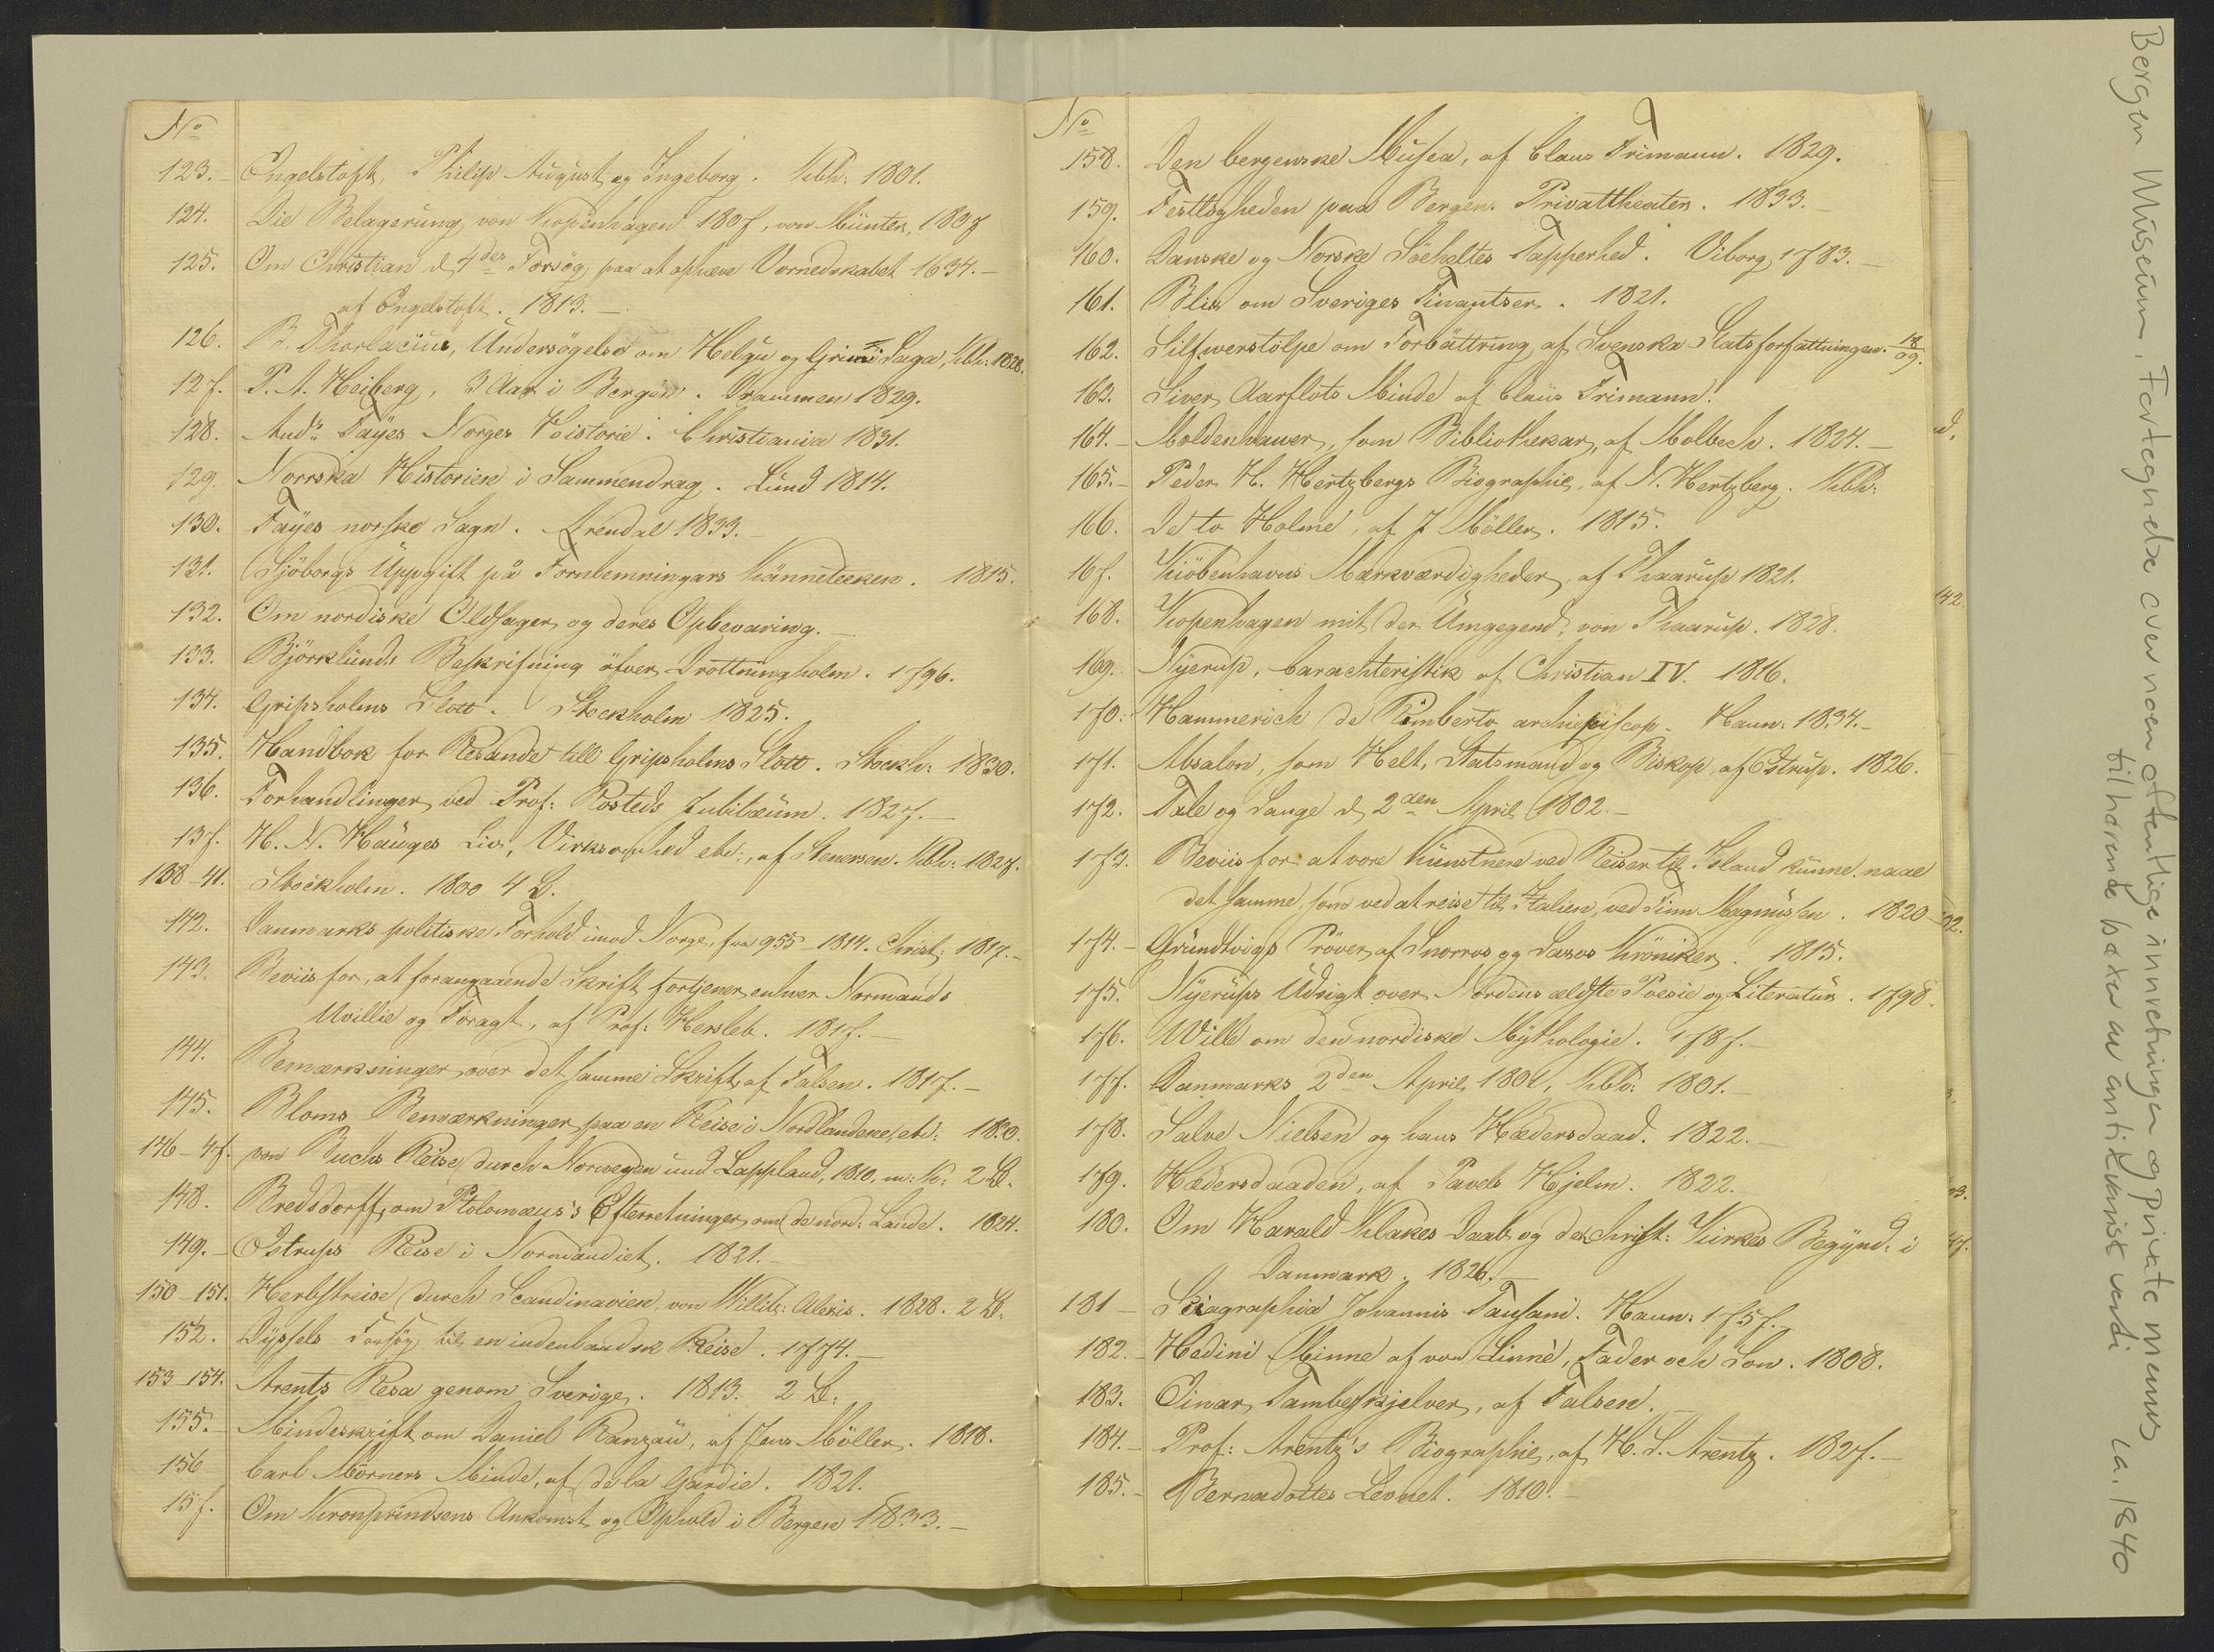 No
123. Engelstoft, Philip August og Ingeborg. Kbh: 1801.
124. Die Belagerung von Kopenhagen 1807, von Münter, 1807
125. Om Christian d 4des Forsög paa at ophæve Vornedskabet 1634. –
af Engelstoft. 1813. –
126. B. Thorlacius, Undersögelse om Helgu og Grims Saga, Kbh. 1828.
127. P. A. Heiberg, 3 Aar i Bergen. Drammen 1829.
128. Andr: Fayes Norges Historie. Christiania 1831.
129. Norrska Historien i Sammendrag. Lund 1814.
130. Fayes norske Sagn. Arendal 1833. –
131. Sjöborgs Uppgift på Fornlemningars Kännetecken. 1815.
132. Om nordiske Oldsager og deres Opbevaring. –
133. Björklunds Beskrifning öfver Drottningholm. 1796.
134. Gripsholms Slott. Stockholm 1825.
135. Handbok for Resande till Gripsholms Slott. Stockh: 1830.
136. Forhandlinger ved Prof: Rosteds Jubilæum. 1827. –
137. H. N. Hauges Liv, Virksomhed etc:, af Stenersen. Kbh: 1827.
138–41. Stockholm. 1800 4 B.
142. Danmarks politiske Forhold imod Norge, fra 955–1814. Christ: 1817. –
143. Beviis for, at forangaaende Skrift fortjener enhver Normands
Uvillie og Foragt, af Prof: Hersleb. 1817. –
144. Bemærkninger over det samme Skrift af Falsen. 1817. –
145. Bloms Bemærkninger paa en Reise i Nordlandene, etc: 1830.
146–47. von Buchs Reise durch Norwegen und Lappland, 1810. m: K: 2 B.
148. Bredsdorff, om Ptolomæus's Efterretninger om de nord: Lande. 1824.
149. – Estrups Reise i Normandiet. 1821. –
150–151. Herbstreise durch Scandinavien von Willib: Alexis. 1828. 2 B.
152. Dyssels Forsög til en indenlandsk Reise. 1774. –
153–154. Arents Resa genom Sverige. 1813. 2 B:
155. – Mindeskrift om Daniel Ranzau, af Jens Möller. 1818.
156 Carl Mörners Minde, af de la Gardie. 1821.
157. Om Kronprindsens Ankomst og Ophold i Bergen 1833. –
No
158. Den bergenske Musea, af Claus Frimann. 1829.
159. Festlogheden paa Bergen Privattheater. 1833. –
160. Danske og Norske Söeheltes Tapperhed. Viborg 1783. –
161. Blik om Sveriges Finantser. 1821.
162. Silfwerstolpe om Forbättring af Svenska Statsforfattningen. 18/09.
163. Siver Aarflots Minde af Claus Frimann.
164. – Moldenhawer, som Bibliothekar, af Molbech. 1824. –
165. – Peder H. Hertzbergs Biographie, af N. Hertzberg. Kbh:
166. De to Holme, af J Möller. 1815.
167. Kiöbenhavns Mærkværdigheder, af Thaarup 1821.
168. Kopenhagen mit der Umgegend, von Thaarup. 1828.
169. Nyerup, Carachteristik af Christian IV. 1816.
170. Hammerich de Rimberto archiepiscop. Haun: 1834. –
171. Absalon, som Helt, Statsmand og Biskop, af Estrup. 1826.
172. Tale og Sange d 2den April 1802. –
173. Beviis for at vore Kunstnere ved Reiser til Island kunne naae
det samme, som ved at reise til Italien, ved Finn Magnussen. 1820
174. – Grundtvigs Pröver af Snorros og Saxos Kröniker. 1815.
175. Nyerups Udsigt over Nordens ældste Poesie og Literatur. 1798.
176. Wille om den nordiske Mythologie. 1787. –
177. Danmarks 2den April 1801, Kbh: 1801. –
178. Salve Nielsen og hans Hædersdaad. 1822. –
179. Hædersdaaden, af Pavels Hjelm. 1822.
180. Om Harald Klakes Daab og det christ: Kirkes Begynd: i
Danmark. 1826. –
181 – Skiagraphia Johannis Tausani. Haun: 1757. –
182. – Hedini Minne af von Linné, Fader och Son. 1808.
183. Einar Tambeskjelver, af Falsen. –
184. – Prof: Arentz's Biographie, af H. S. Arentz. 1827. –
185. – Bernadottes Levnet. 1810. –
d.
142.
92.
93.
47.
Bergen Museum. Fortegnelse over noen offentlige innretninger og private menns
tilhørende bøker av antikvarisk verdi ca. 1840